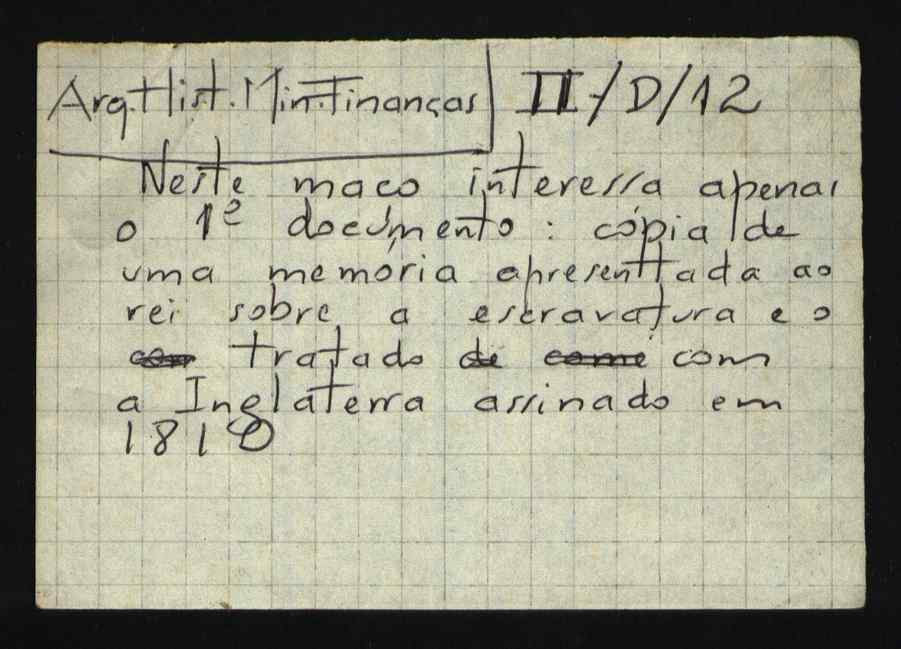 Arq.Hist.Min.Finanças | II/D/12
Neste maço interessa apenas
o 1º documento : cópia de
uma memória apresenttada ao
rei sobre a escravatura e o
tratado com
a Inglaterra assinado em
1810